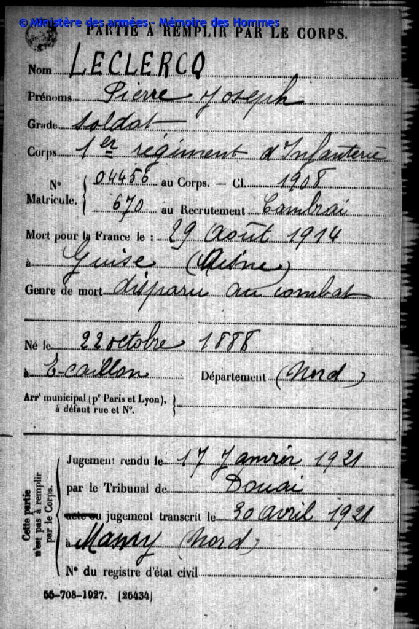 © Ministère des armées - Mémoire des Hommes
PARTIE A REMPLIR PAR LE CORPS.
Nom LECLERCQ
Prénoms Pierre Joseph
Grade soldat
Corps 1er régiment d'Infanterie
N° 04486 au Corps. — Cl. 1908
Matricule. 670 au Recrutement Cambrai
Mort pour la France le : 29 août 1914
à Guise (Aisne)
Genre de mort disparu au combat
Né le 22 octobre 1888
à Ecaillon Département (Nord)
Arrt municipal (pr Paris et Lyon),
à défaut rue et N°.
Cette partie
n'est pas à remplir
par le Corps.
Jugement rendu le 17 Janvier 1921
par le Tribunal de Douai
acte ou jugement transcrit le 30 avril 1921
à (Nord)
N° du registre d'état civil
55-708-1927. [26434]